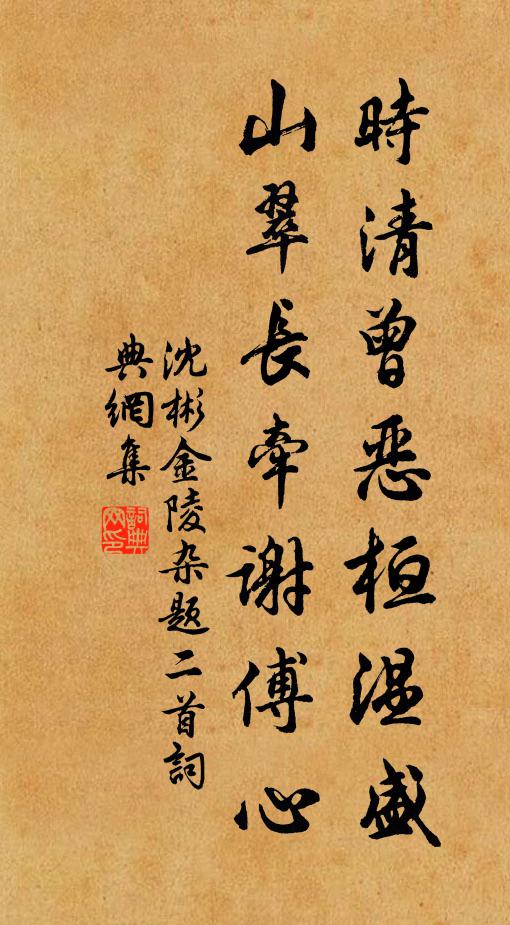 時清曾惡桓温盛
山翠長牽謝傅心
沈彬金陵杂题二首詞
典網集
詞典